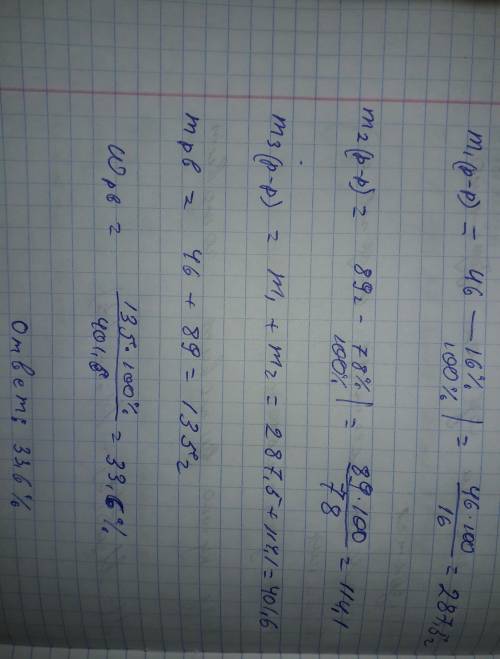 m₁(р-р) = 46 — 16% | 100% = 46·100 / 16 = 287,5г
m₂(р-р) = 89г - 78% | 100% = 89·100 / 78 = 114,1
m₃(р-р) = m₁ + m₂ = 287,5 + 114,1 = 401,6
mрв = 46 + 89 = 135г
Wрв = 135·100% / 401,6 = 33,6%
Ответ: 33,6%